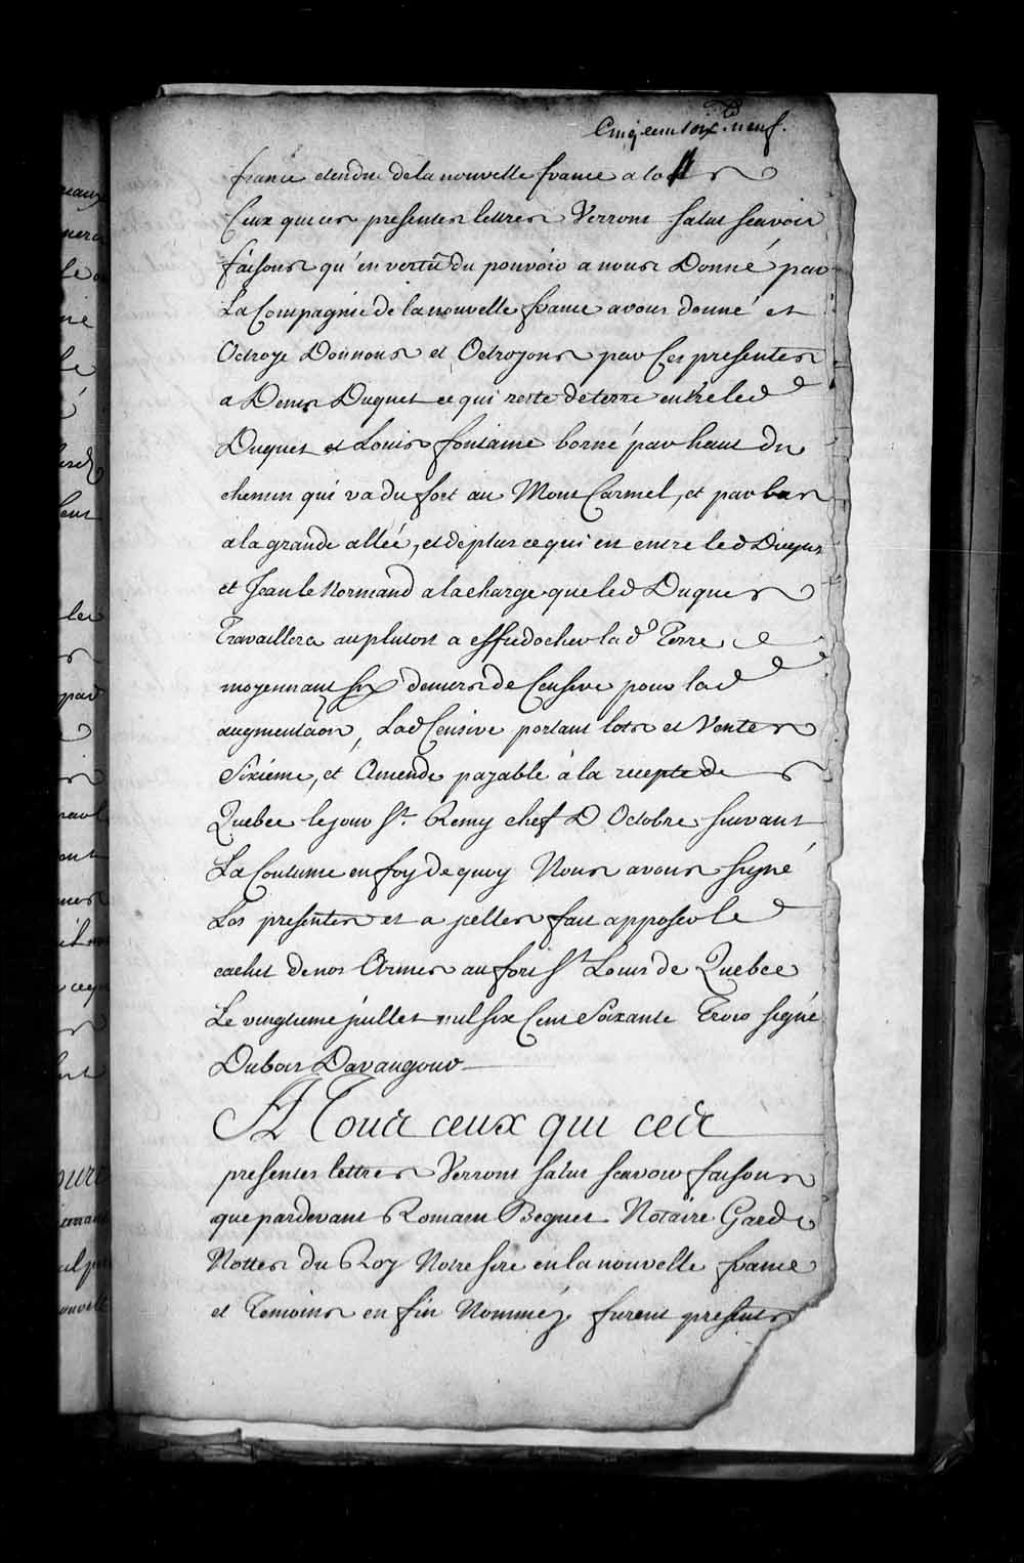 Cinq cent soix.te neuf.
france etendue de la nouvelle france a to
Ceux qui ces presentes lettres Verront Salut scavoir
faisons qu'en vertu du pouvoir a nous Donné par
La Compagnie de la nouvelle france avons donné et
Octroyé Donnons et Octroyons par Ces presentes
a Denis Duquet ce qui reste de terre entre led
Duquet et Louis fontaine borné par haut du
chemin qui va du fort au Mont Carmel, et par bas
a la grande allée, et de plus ce qui est entre led Duquet
et Jean le Normand a la charge que led Duquet
Travaillera au plutost a effredocher lad.e Terre
moyennant six deniers de Censive pour lad
augmentaon, Lad Censive portant lots et Ventes
Sixième, et Amende payable à la recepte de
Quebec le jour St. Remy chef D Octobre suivant
La Coutume en foy de quoy Nous avons signé
Les presentes et a jcelles fait apposer le
cachet de nos Armes au fort St Louis de Quebec
Le vingtieme juillet mil six Cent Soixante Trois signé
Dubois Davaugour
A Tous ceux qui ces
presentes lettres Verront salut scavoir faisons
que pardevant Romain Becquet Notaire Garde
Nottes du Roy Notre sire en la nouvelle france
et Temoins en fin Nommez furent presents